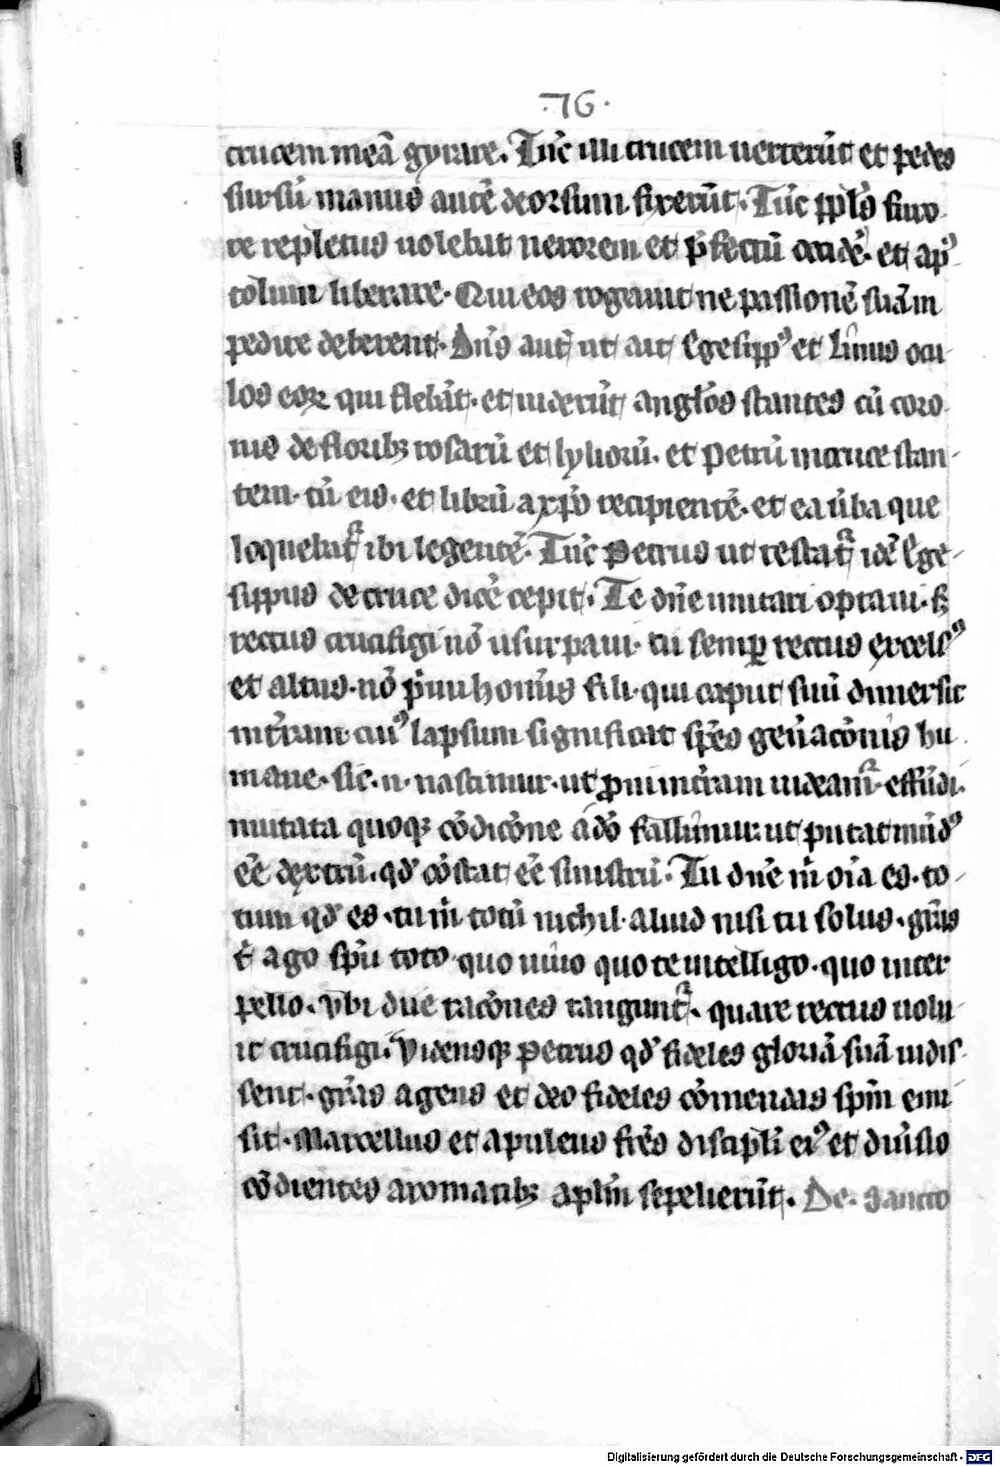 ·76·
crucem meā gyrare. Tūc illi crucem uerterūt et pedes
sursū manus autē deorsum fixerūt. Tūc ppl̄s furo-
re repletus uolebat neronem et p̄fectū occidē. et apꝰ-
tolum liberare. Qui eos rogauit ne passionē suā im
pedire deberent. Dn̄s aut̄ ut ait Egesippꝰ et Linus ocu-
los eoꝝ qui flebāt. et uiderūt angl̄os stantes cū coro-
nis de floribꝫ rosarū et lylioꝝ. et Petrū in cruce stan-
tem. cū eis. et librū a xp̄o recipientē. et ea ūba que
loquebat᷑ ibi legentē. Tūc Petrus ut testat᷑ idē Ege-
sippus de cruce dicē cepit. Te dn̄e imitari optaui. sꝫ
rectus crucifigi nō usurpaui. tu semꝑ rectus excelsꝰ
et altus. nos p̄mi hoīs filii. qui caput suū dimersit
in t̄ram cuiꝰ lapsum significat sp̄es gen̄acōnis hu-
mane. sic .n. nascimur. ut ꝓni in t̄ram uideam᷑ effūdi.
mutata quoqꝫ cōdicōne ē adō fallimur. ut putat mūdꝰ
ēe dextrū. qd̄ cōstat ēe sinistrū. Tu dn̄e m̄ oīa es. to-
tum qd̄ es. tu m̄ totū nichil aliud nisi tu solus. gr̄as
t̄ ago spū toto quo uiuo quo te intelligo. quo inter
pello. Vbi due racōnes tangunt᷑. quare rectus uolu-
it crucifigi. Vidensqꝫ Petrus qd̄ fideles gloriā suā uidis-
sent. gr̄as agens et deo fideles cōmendās spm̄ emi
sit. Marcellus et apuleius fr̄es discipl̄i eiꝰ et
cōdientes aromatibꝫ apl̄m sepelierūt. De sancto
Digitalisierung gefördert durch die Deutsche Forschungsgemeinschaft - DFG